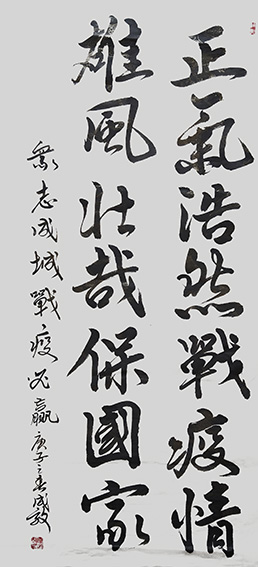 正氣浩然戰疫情
雄風壯哉保國家
眾志成城戰疫必贏庚子之春成毅